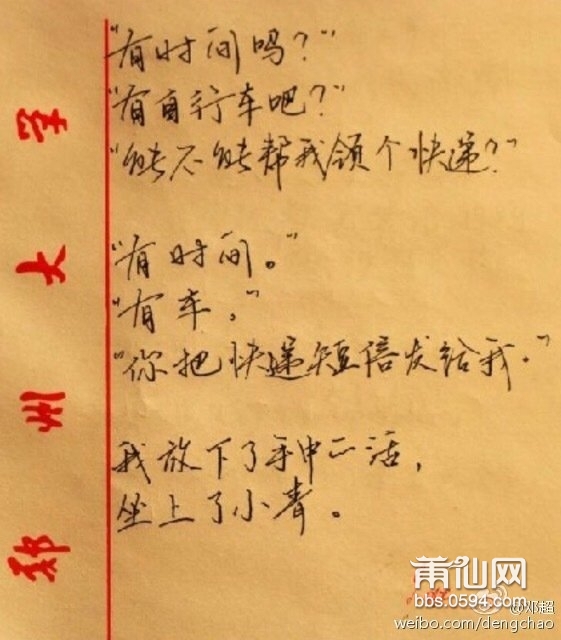 "有时间吗？"
"有自行车吧？"
"能不能帮我领个快递？"
"有时间。"
"有车。"
"你把快递短信发给我。"
我放下了手中的活，
坐上了小青。
郑州大学
莆仙网
bbs.0594.com
@邓超
weibo.com/dengchao